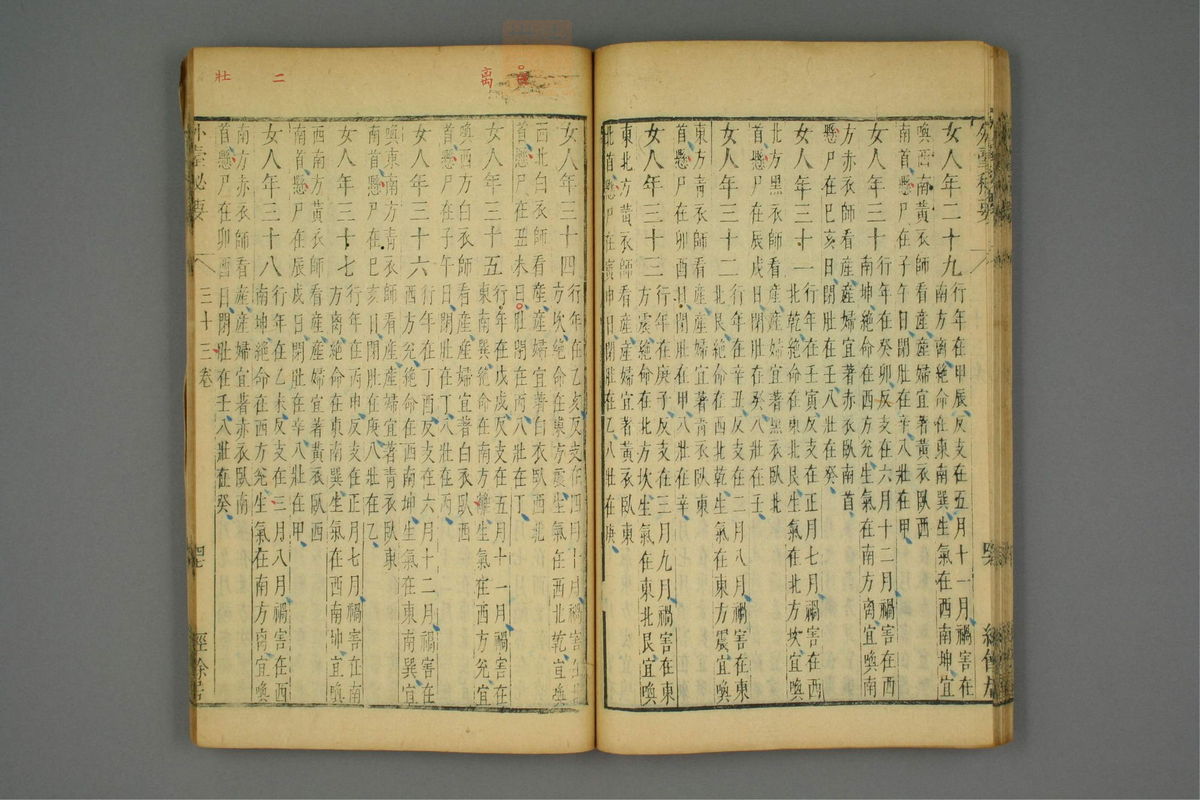 女人年二十九
行年在甲辰反支在五月十一月禍害在
南方離絶命在東南巽生氣在西南坤宜
喚西南黃衣師看產產婦宜著黃衣臥西
南首懸尸在子午日閉肚在辛八壯在甲
女人年三十
行年在癸卯反支在六月十二月禍害在西
南坤絶命在西方兌生氣在南方离宜喚南
方赤衣師看產產婦宜著赤衣臥南首
懸尸在巳亥日閉肚在壬八壯在癸
女人年三十一
行年在壬寅反支在正月七月禍害在西
北乾絶命在東北艮生氣在北方坎宜喚
北方黑衣師看產產婦宜著黑衣臥北
首懸尸在辰戌日閉肚在癸八壯在壬
女人年三十二
行年在辛丑反支在二月八月禍害在東
北艮絶命在西北乾生氣在東方震宜喚
東方青衣師看產產婦宜著青衣臥東
首懸尸在卯酉日閉肚在甲八壯在辛
女人年三十三
行年在庚子反支在三月九月禍害在東
方震絶命在北方坎生氣在東北艮宜喚
東北方黃衣師看產產婦宜著黃衣臥東
北首懸尸在寅申日閉肚在乙八壯在庚
离
女人年三十四
行年在乙亥反支在四月十月禍害在北
方坎絶命在東方震生氣在西北乾宜喚
西北白衣師看產產婦宜著白衣臥西北
首懸尸在丑未日肚閉在丙八壯在丁
女人年三十五
行年在戊戌反支在五月十一月禍害在
東南巽絶命在南方離生氣在西方兌宜
喚西方白衣師看產產婦宜著白衣臥西
首懸尸在子午日閉肚在丁八壯在丙
女人年三十六
行年在丁酉反支在六月十二月禍害在
西方兌絶命在西南坤生氣在東南巽宜
喚東南方青衣師看產產婦宜著青衣臥東
南首懸尸在巳亥日閉肚在庚八壯在乙
二
女人年三十七
行年在丙申反支在正月七月禍害在南
方离絶命在東南巽生氣在西南坤宜喚
西南方黃衣師看產產婦宜著黃衣臥西
南首懸尸在辰戌日閉肚在辛八壯在甲
女人年三十八
行年在乙未反支在三月八月禍害在西
南坤絶命在西方兌生氣在南方离宜喚
南方赤衣師看產產婦宜著赤衣臥南
首懸尸在卯酉日閉肚在壬八壯在癸
壯
外臺秘要 三十三卷 經餘居